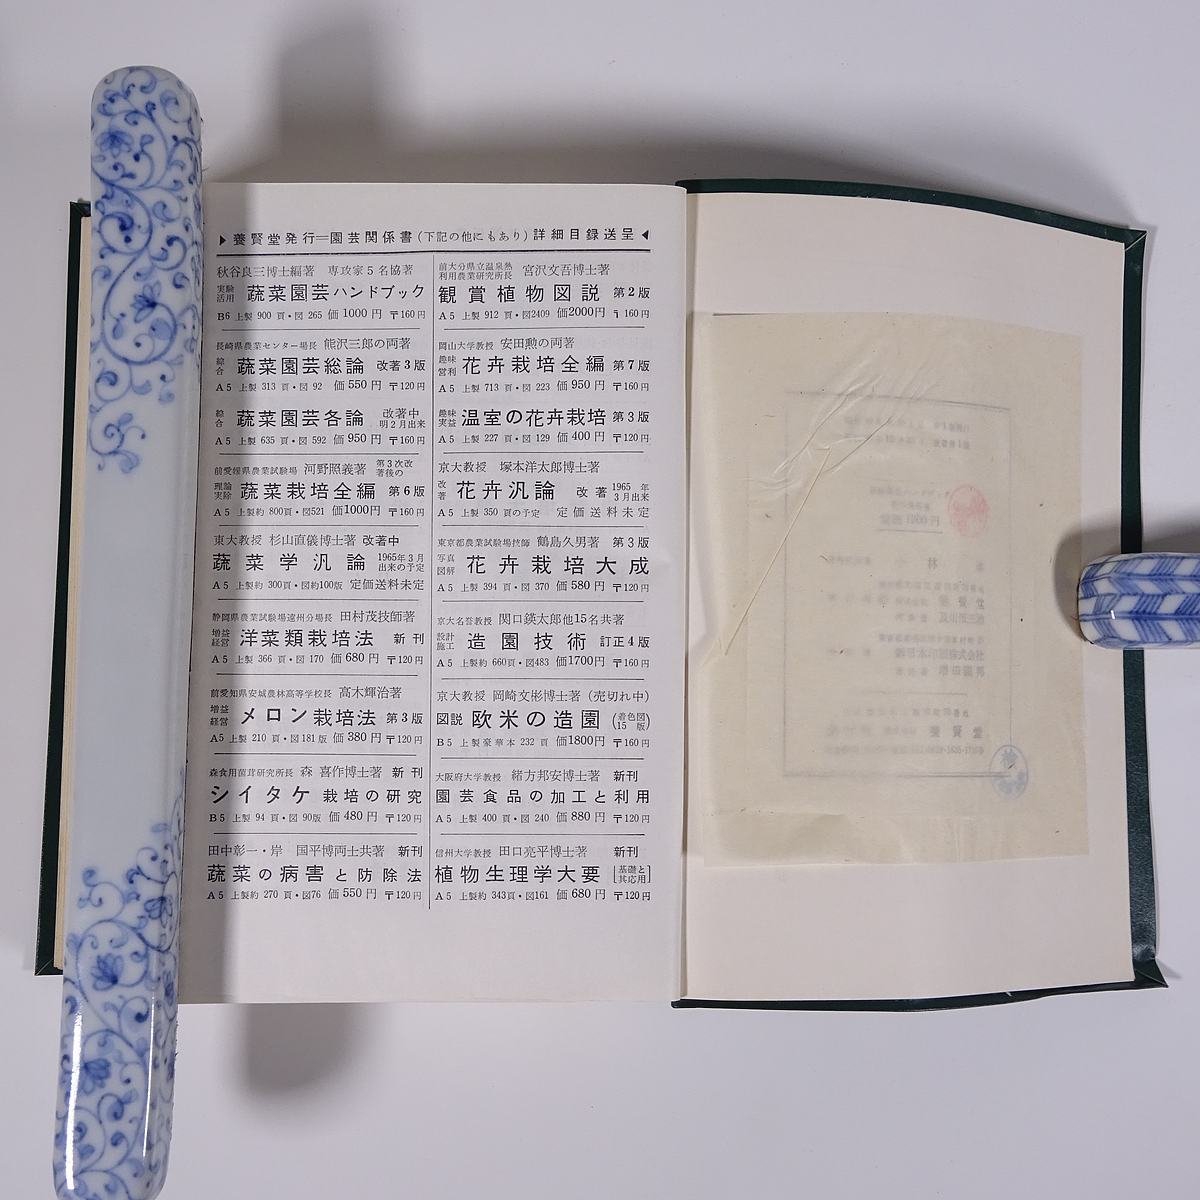 養賢堂発行＝園芸関係書(下記の他にもあり)詳細目録送呈
秋谷良三博士編著 専攻家5名協著
実験活用 蔬菜園芸ハンドブック
B6 上製 900 頁・図 265 価 1000 円 〒160円
長崎県農業センター場長 熊沢三郎の両著
綜合 蔬菜園芸総論 改著3版
A5 上製 313 頁・図 92 価 550円 〒120円
綜合 蔬菜園芸各論 改著中 明2月出来
A5 上製 635 頁・図 592 価 950円 〒160円
前愛媛県農業試験場 河野照義著 第3次改著後の
理論実際 蔬菜栽培全編 第6版
A5 上製約 800頁・図521 価1000円 〒160円
東大教授 杉山直儀博士著 改著中
蔬菜学汎論 1965年3月出来の予定
A5 上製約 300頁・図約100版 定価送料未定
静岡県農業試験場遠州分場長 田村茂技師著
増益経営 洋菜類栽培法 新刊
A5 上製 366 頁・図 170 価 680円 〒120円
前愛知県安城農林高等学校長 高木輝治著
増益経営 メロン栽培法 第3版
A5 上製 210 頁・図181版 価 380円 〒120円
森食用菌茸研究所長 森 喜作博士著 新刊
シイタケ 栽培の研究
B5 上製 94 頁・図 90版 価 480円 〒120円
田中彰一・岸 国平博両士共著 新刊
蔬菜の病害と防除法
A5 上製約 270 頁・図76 価 550円 〒120円
前大分県立温泉熱利用農業研究所長 宮沢文吾博士著
観賞植物図説 第2版
A5 上製 912 頁・図2409 価2000円 〒160円
岡山大学教授 安田勲の両著
趣味営利 花卉栽培全編 第7版
A5 上製 713 頁・図 223 価 950円 〒160円
趣味実益 温室の花卉栽培 第3版
A5 上製 227 頁・図 129 価 400円 〒120円
京大教授 塚本洋太郎博士著
改著 花卉汎論 改著 1965年3月出来
A5 上製 350 頁の予定 定価送料未定
東京都農業試験場技師 鶴島久男著 第3版
写真図解 花卉栽培大成
A5 上製 394 頁・図 370 価 580円 〒120円
京大名誉教授 関口鍈太郎他15名共著
設計施工 造園技術 訂正4版
A5 上製約 660頁・図483 価1700円 〒160円
京大教授 岡崎文彬博士著(売切れ中)
図説 欧米の造園 (着色図15版)
B5 上製豪華本 232 頁 価1800円 〒160円
大阪府大学教授 緒方邦安博士著 新刊
園芸食品の加工と利用
A5 上製 400 頁・図 240 価 880円 〒120円
信州大学教授 田口亮平博士著 新刊
植物生理学大要 [基礎と其応用]
A5 上製約 343頁・図161 価 680円 〒120円